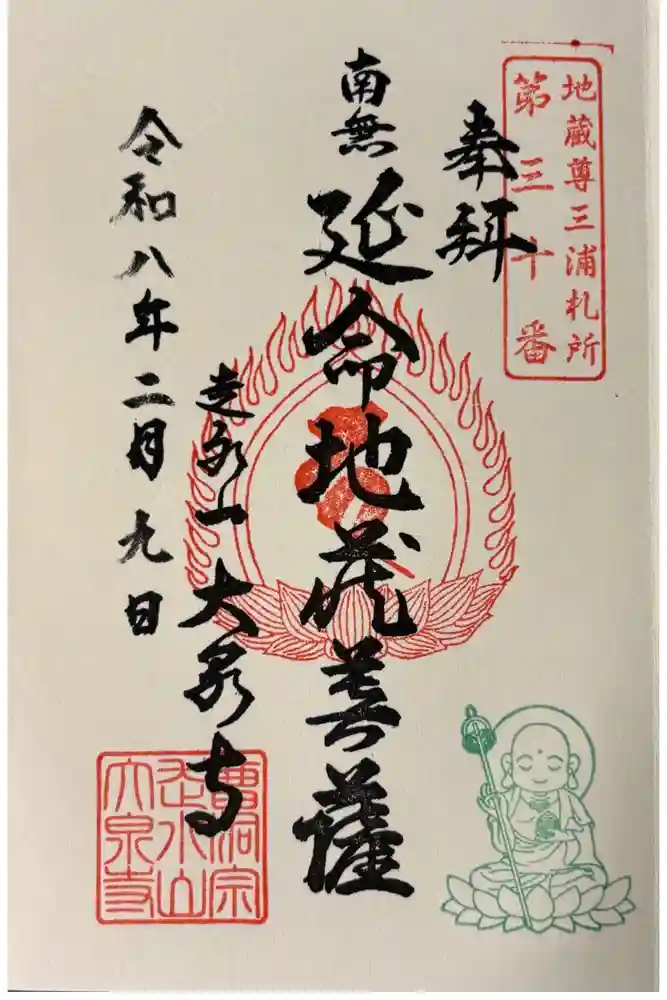 地蔵尊三浦札所
第三十番
奉拝
南無延命地蔵菩薩
走水山 大泉寺
令和八年二月九日
曹洞宗
走水山
大泉寺